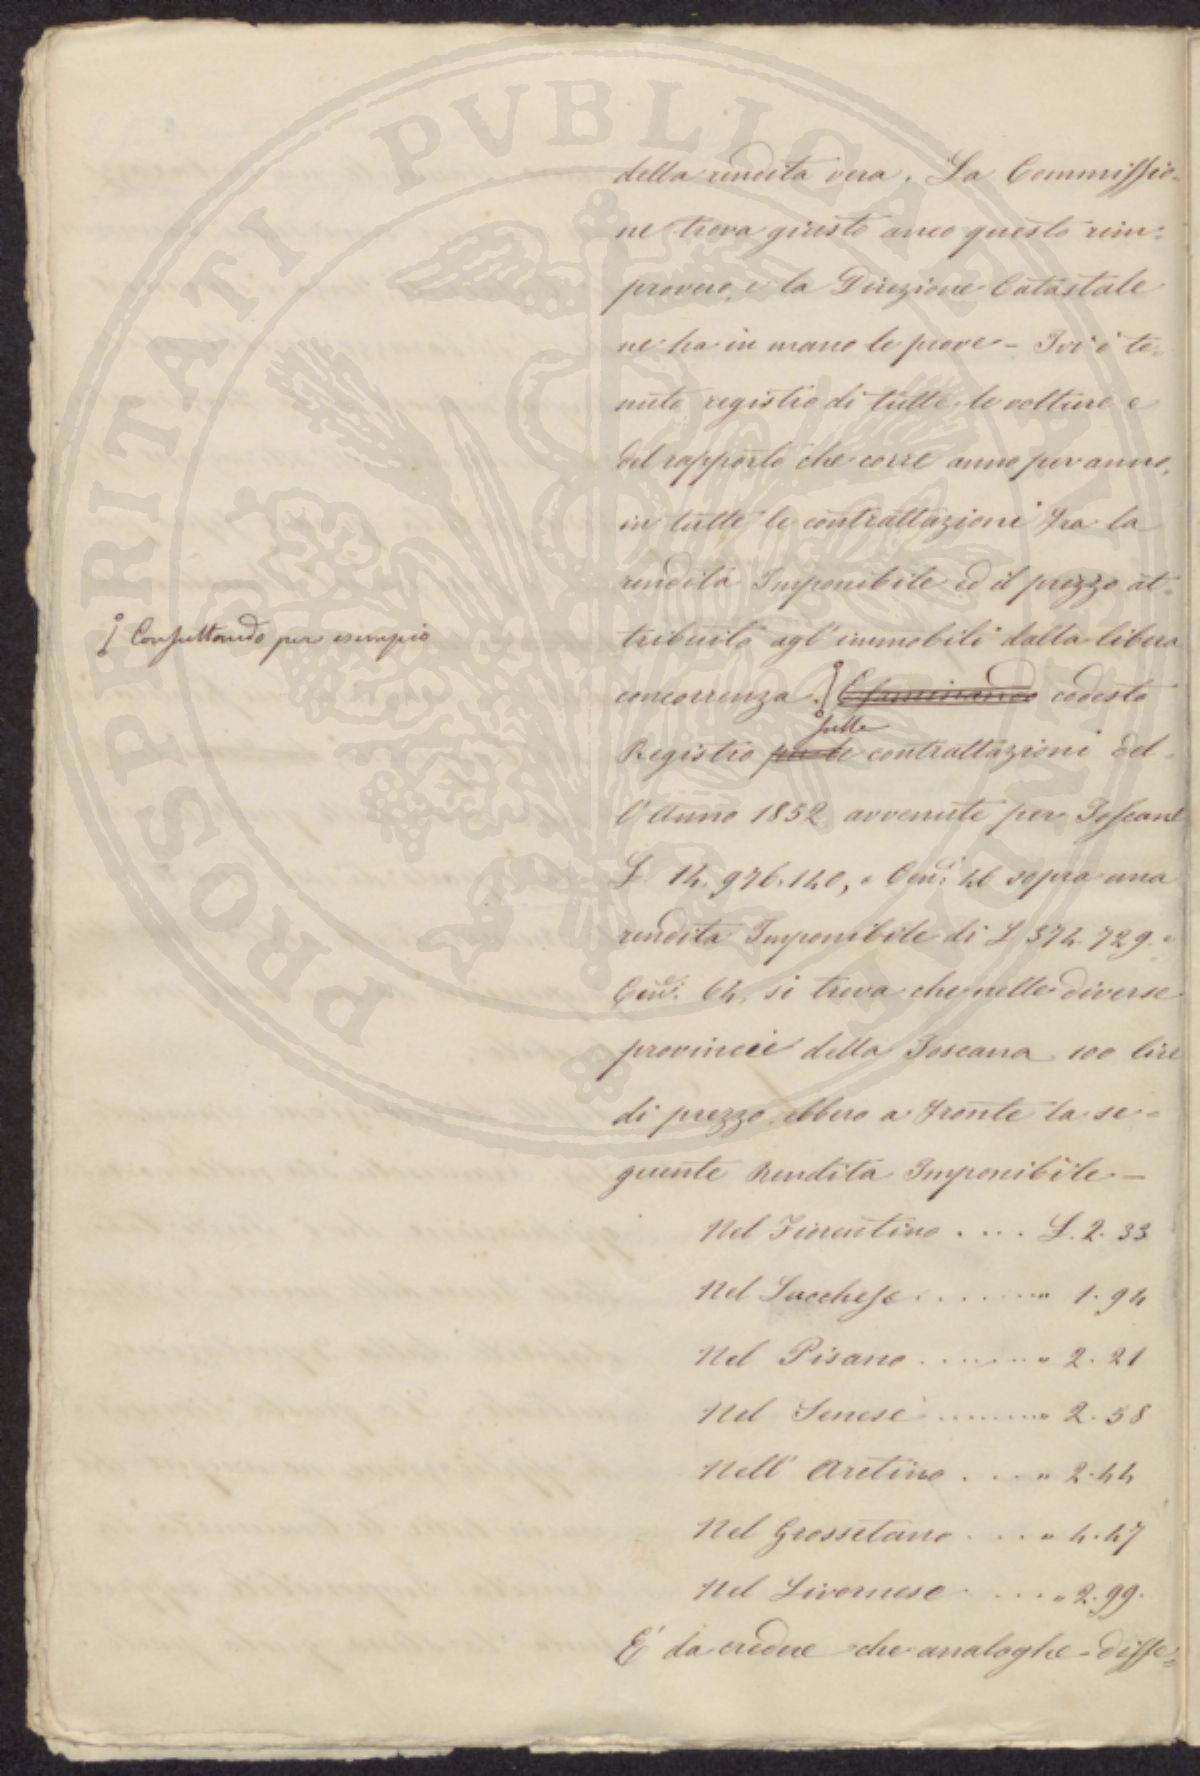 della rendita vera. La Commissio-
ne trova giusto anco questo rim-
provero, e la Direzione Catastale
ne ha in mano le prove - Ivi è te-
nuto registro di tutte le volture e
del rapporto che corre anno per anno,
in tutte le contrattazioni fra la
rendita Imponibile ed il prezzo at-
tribuito agl'immobili dalla libera
Consultando per esempio
concorrenza. Esaminando codesto
sulle
Registro per le contrattazioni del-
l'Anno 1852 avvenute per Toscane
L. 14.976.140, e Cent. 46 sopra una
rendita Imponibile di L. 374.729. e
Cent. 64, si trova che nelle diverse
provincie della Toscana 100 lire
di prezzo ebbero a fronte la se-
guente Rendita Imponibile -
Nel Fiorentino .... L. 2. 33
Nel Lucchese ........ " 1. 94
Nel Pisano ........ " 2. 21
Nel Senese ........ " 2. 58
Nell' Aretino .... " 2. 44
Nel Grossetano .... " 4. 47
Nel Livornese .... " 2. 99.
E' da credere che analoghe diffe-
PROSPERITATI PVBLICAE AVGENDAE